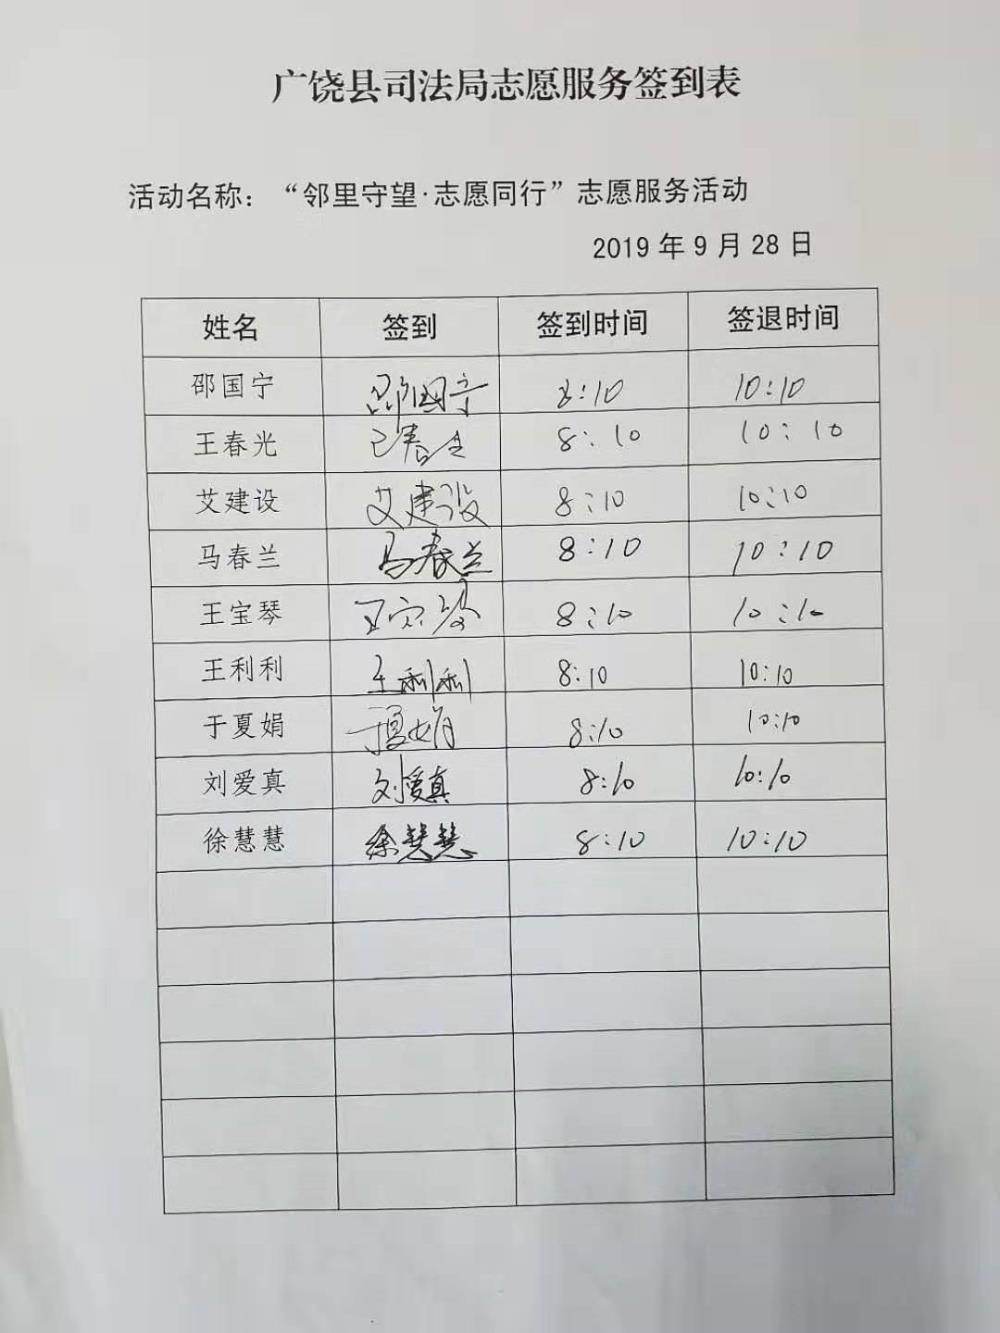 广饶县司法局志愿服务签到表
活动名称：“邻里守望·志愿同行”志愿服务活动
2019 年 9 月 28 日
姓名 签到 签到时间 签退时间
邵国宁 邵国宁 8:10 10:10
王春光 王春光 8:10 10:10
艾建设 艾建设 8:10 10:10
马春兰 马春兰 8:10 10:10
王宝琴 王宝琴 8:10 10:10
王利利 王利利 8:10 10:10
于夏娟 于夏娟 8:10 10:10
刘爱真 刘爱真 8:10 10:10
徐慧慧 徐慧慧 8:10 10:10